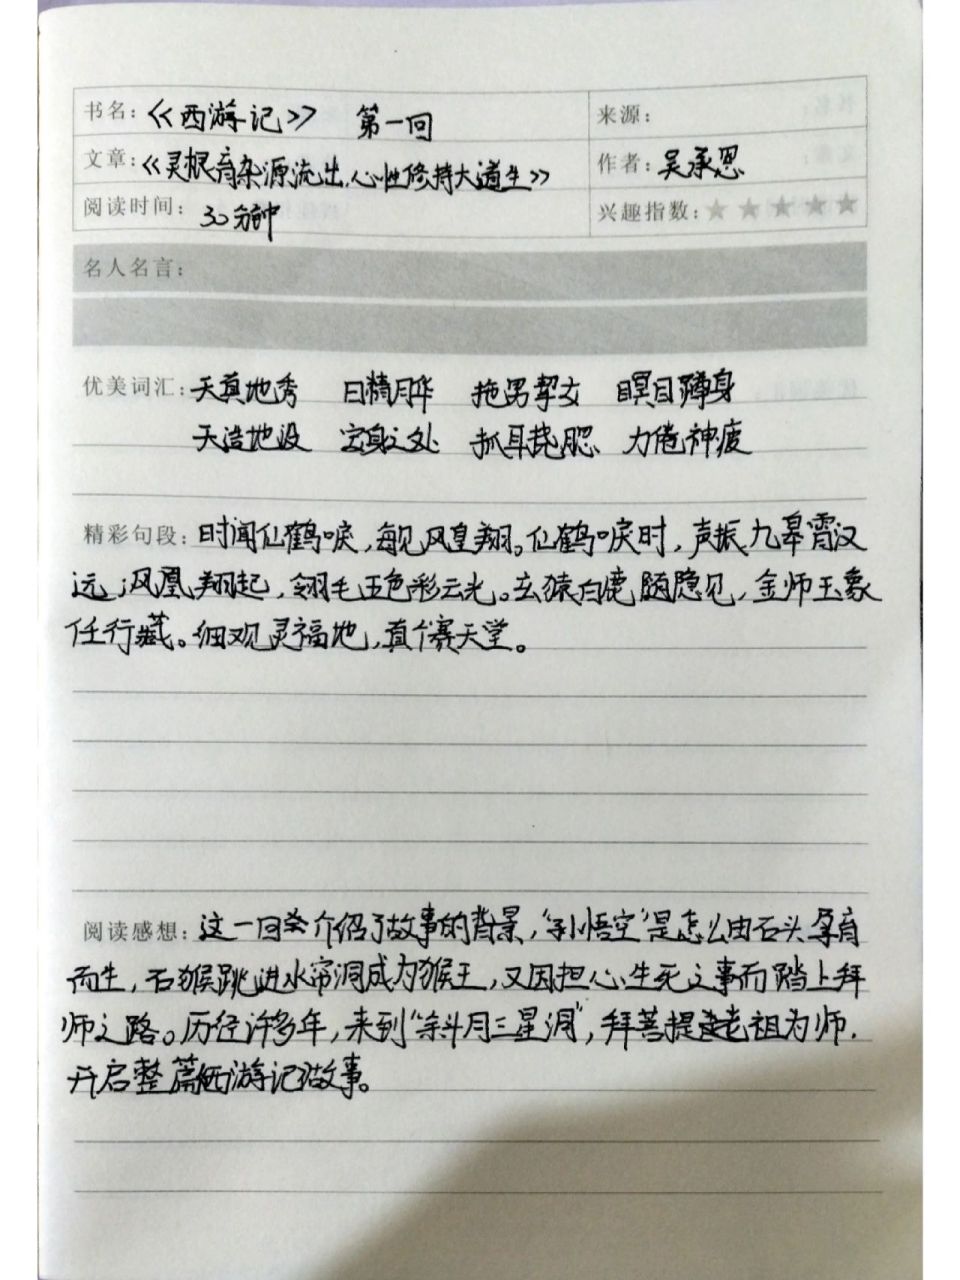 书名：《西游记》 第一回 来源：
文章：《灵根育杂源流出，心性修持大道生》 作者：吴承恩
阅读时间：30分钟 兴趣指数：★★★★★
名人名言：
优美词汇：天真地秀 日精月华 拖男挈女 瞑目蹲身
天造地设 安身之处 抓耳挠腮 力倦神疲
精彩句段：时闻仙鹤唳，每见凤皇翔。仙鹤唳时，声振九皋霄汉
远；凤凰翔起，翎毛五色彩云光。玄猿白鹿随隐见，金师玉象
任行藏。细观灵福地，真个赛天堂。
阅读感想：这一回介绍了故事的背景，“孙悟空”是怎么由石头孕育
而生，石猴跳进水帘洞成为猴王，又因担心生死之事而踏上拜
师之路。历经许多年，来到“斜月三星洞”，拜菩提老祖为师，
开启整篇西游记故事。